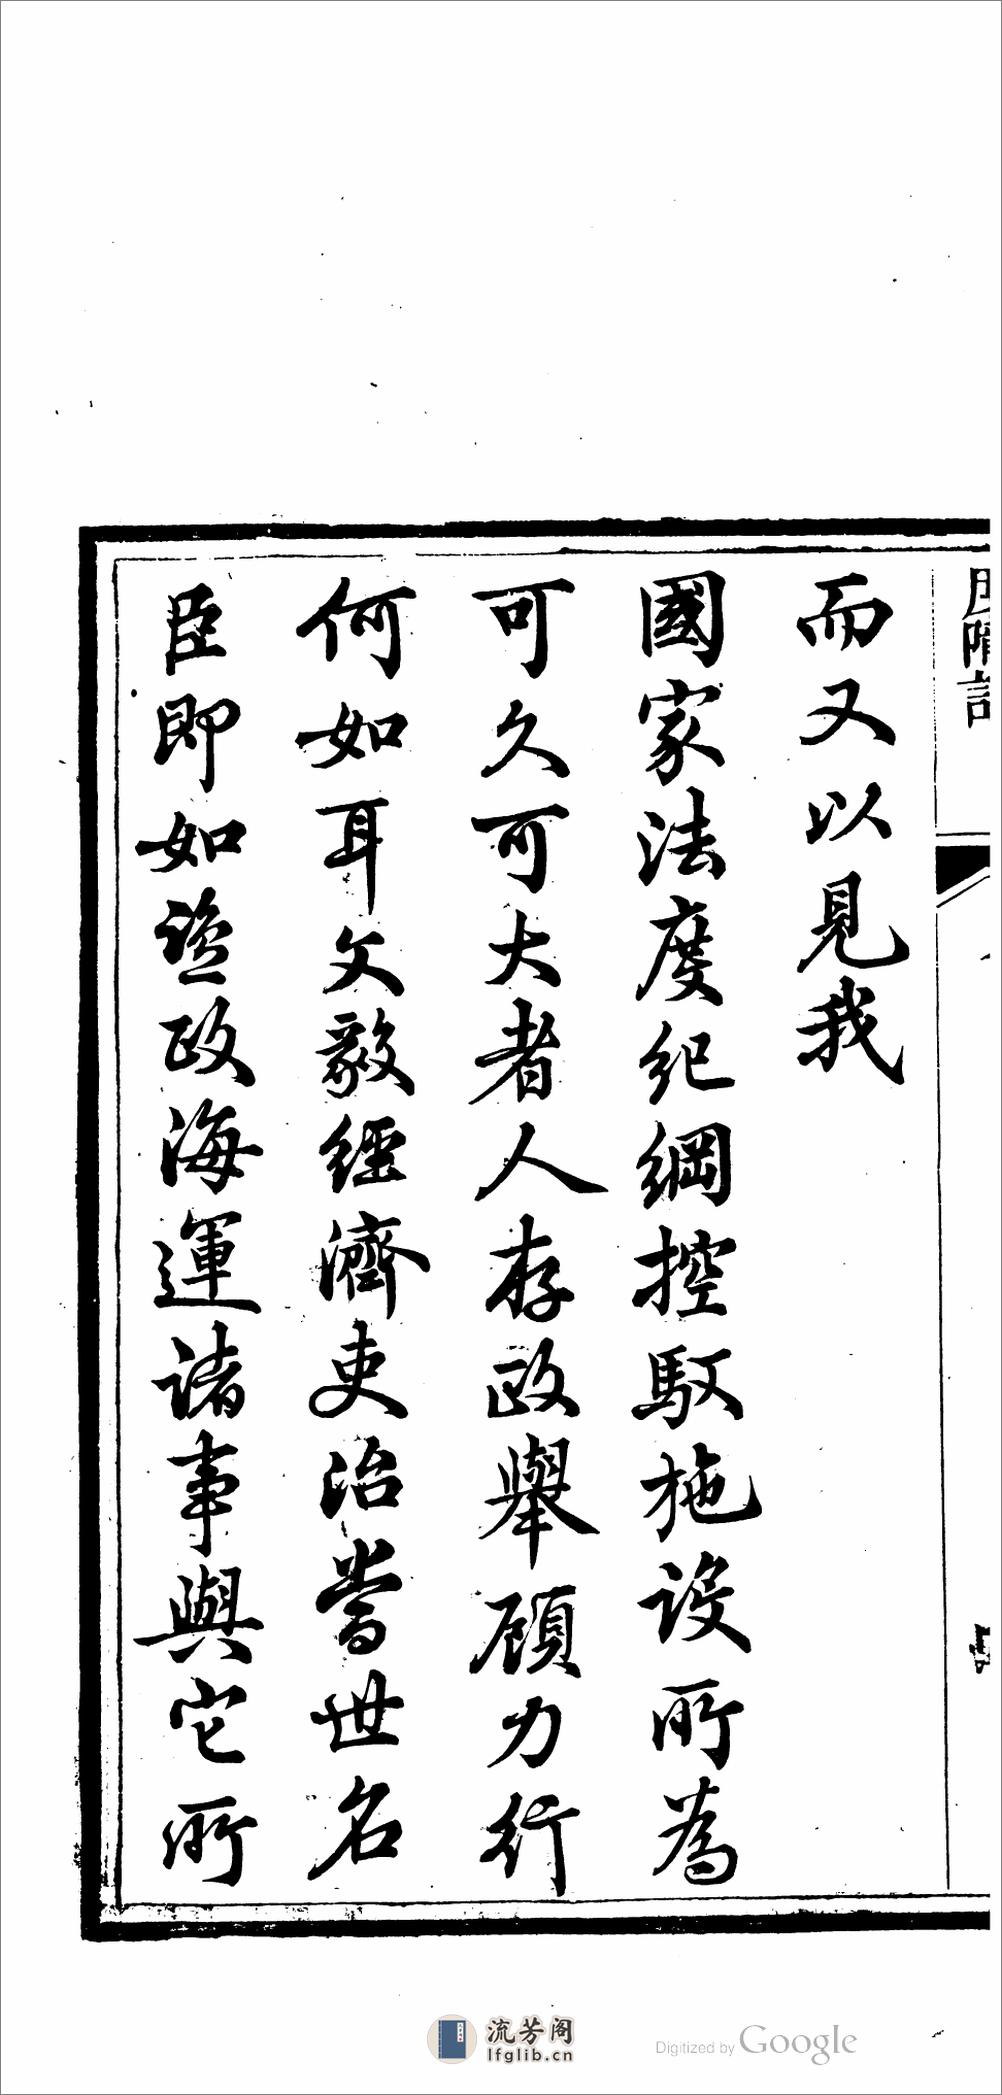 而又以見我
國家法度紀綱控馭施設所為
可久可大者人存政舉顧力行
何如耳文毅經濟吏治當世名
臣即如鹽政海運諸事與它所
流芳阁
lfglib.cn
Digitized by Google